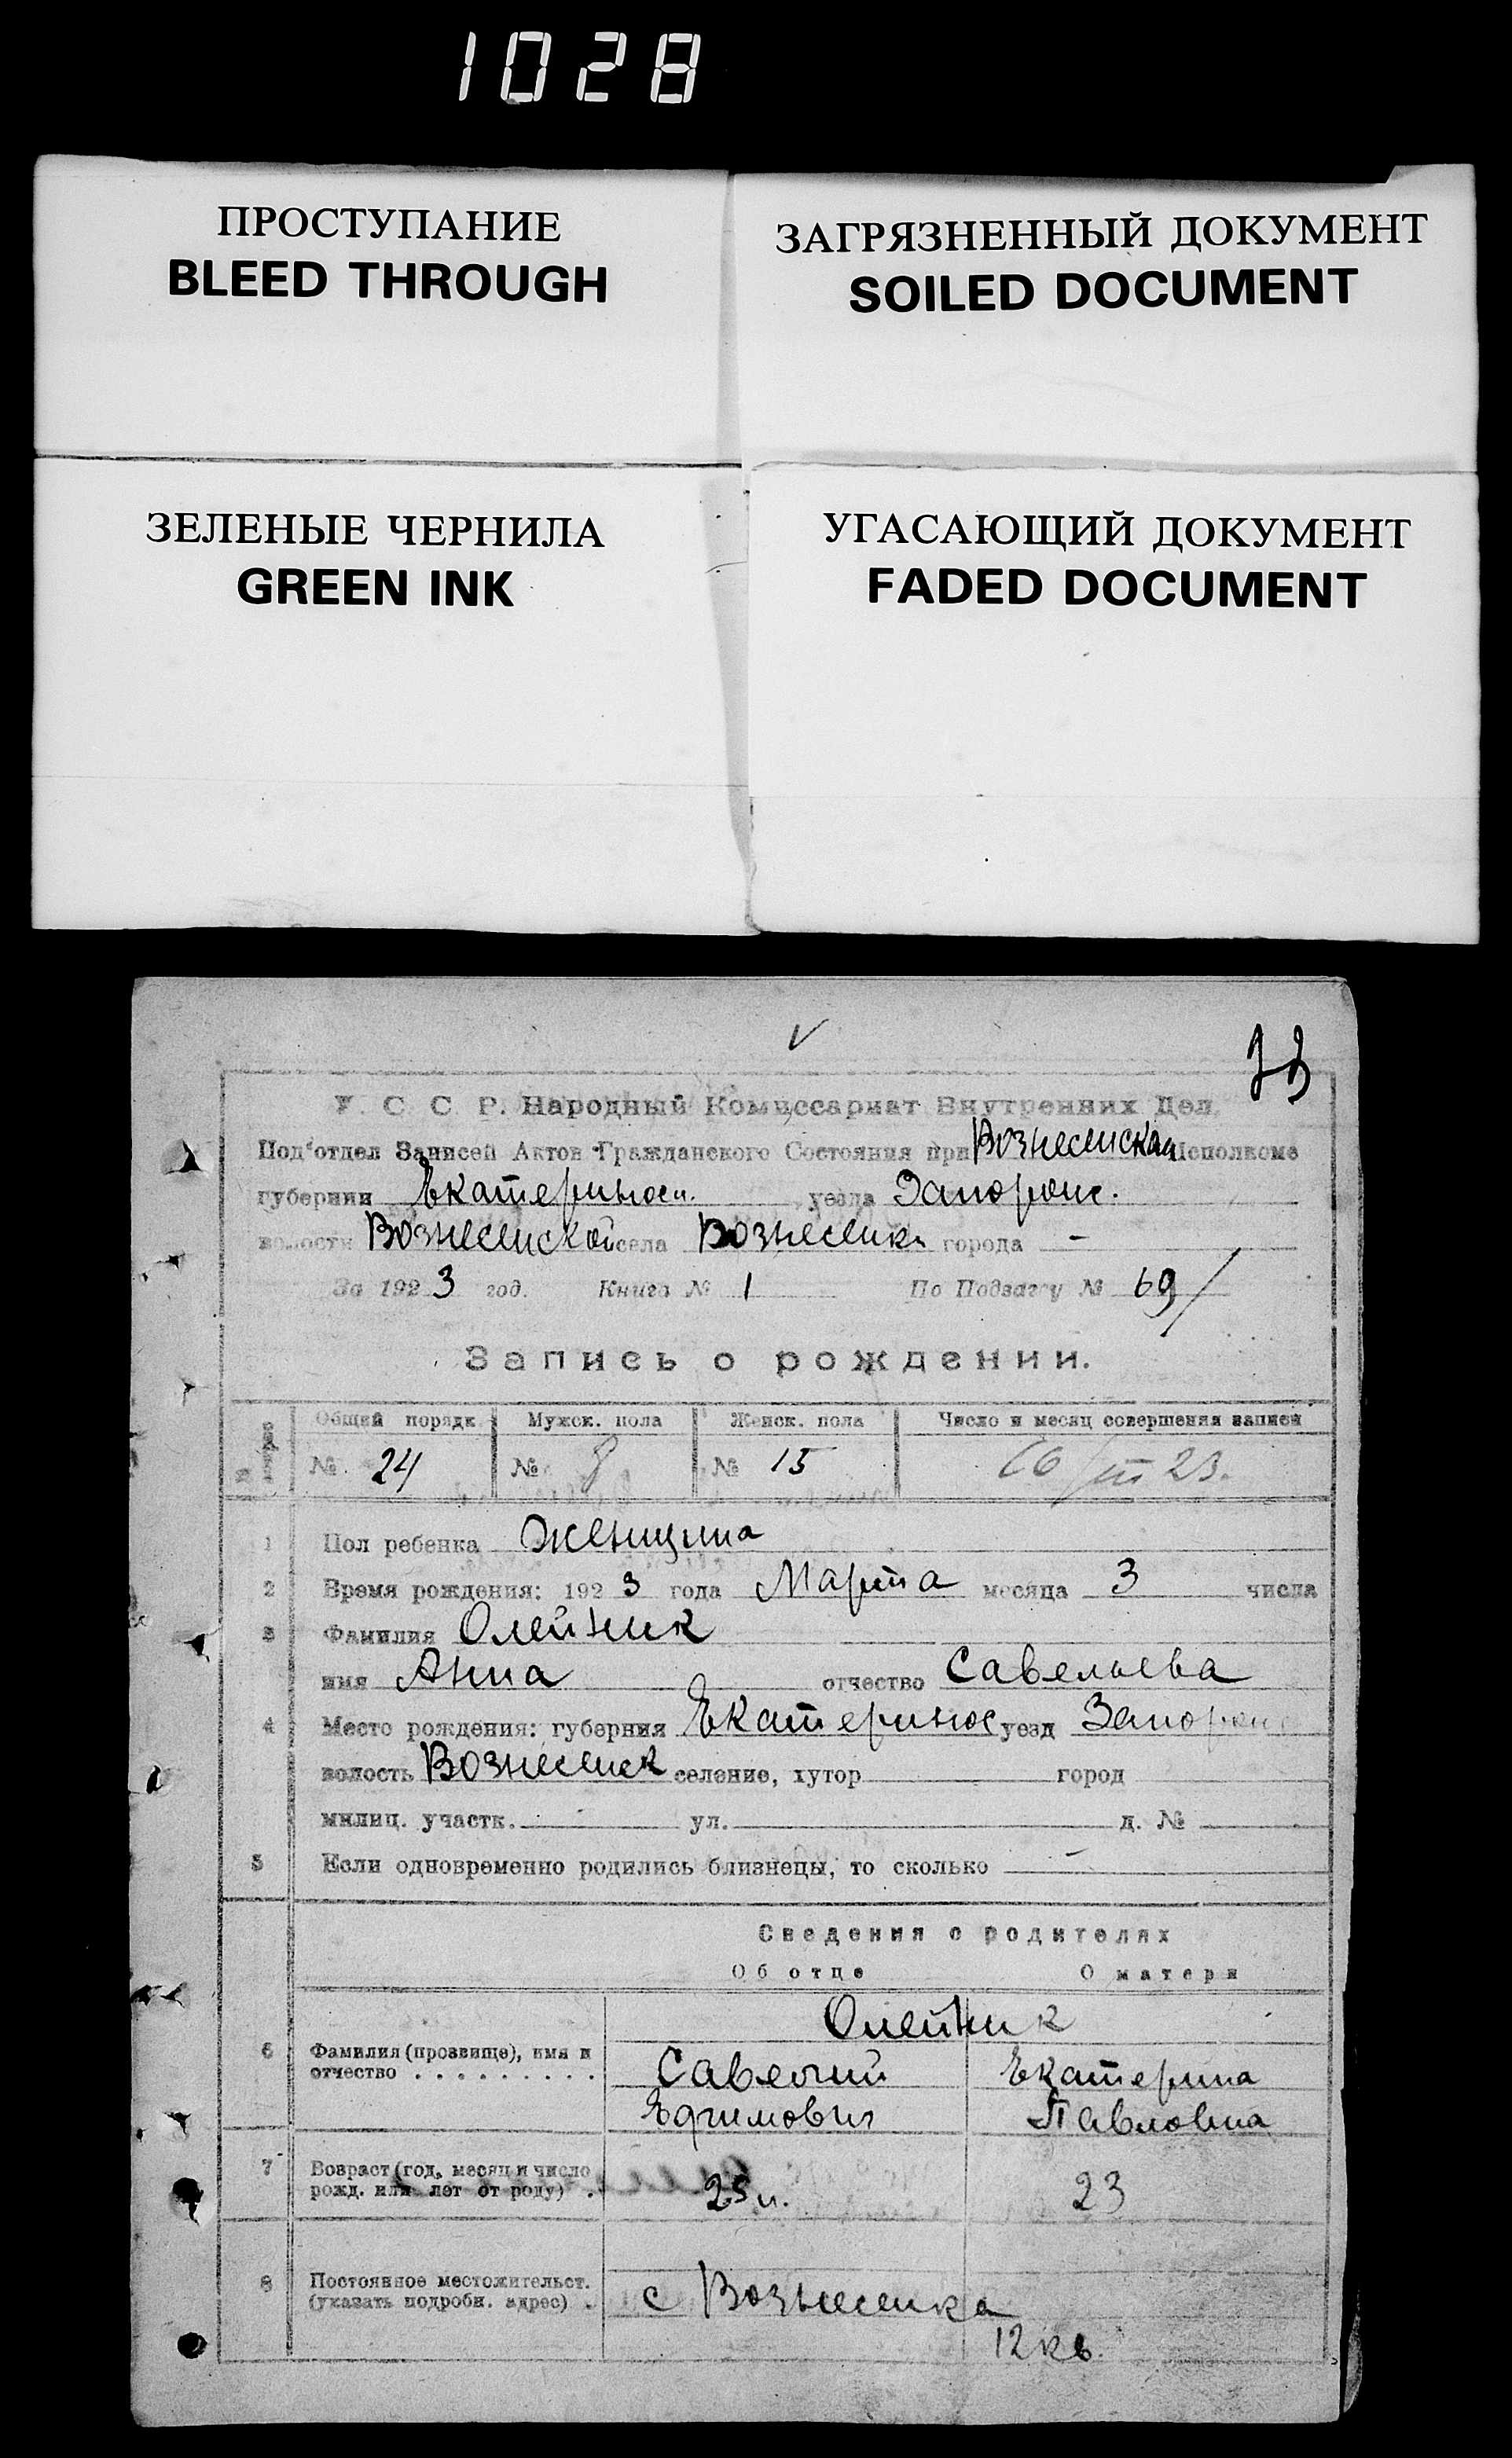 1028
ПРОСТУПАНИЕ
BLEED THROUGH
ЗАГРЯЗНЕННЫЙ ДОКУМЕНТ
SOILED DOCUMENT
ЗЕЛЕНЫЕ ЧЕРНИЛА
GREEN INK
УГАСАЮЩИЙ ДОКУМЕНТ
FADED DOCUMENT
У. С. С. Р. Народный Комиссариат Внутренних Дел.
Под'отдел Записей Актов Гражданского Состояния при Вознесенском Исполкоме
губернии Екатеринос. уезда Запорож.
волости Вознесенской села Вознесенка города -
За 1923 год. Книга № 1 По Подзагсу № 69/
Запись о рождении.
Общий порядк Мужск. пола Женск. пола Число и месяц совершения записи
№ 24 № № 15 16/III 23.
1 Пол ребенка Женщина
2 Время рождения: 1923 года Марта месяца 3 числа
3 Фамилия Олейник
имя Анна отчество Савельева
4 Место рождения: губерния Екатеринос уезд Запорож
волость Вознесенск селение, хутор город
милиц. участк. - ул. д. №
5 Если одновременно родились близнецы, то сколько -
Сведения о родителях
Об отце О матери
Олейник
6 Фамилия (прозвище), имя и отчество . . . . . . . . . Савелий Екатерина
Ефимович Павловна
7 Возраст (год, месяц и число
рожд. или лет от роду) . 25 л. 23
8 Постоянное местожительст.
(указать подробн. адрес) . с Вознесенка
12 кв.